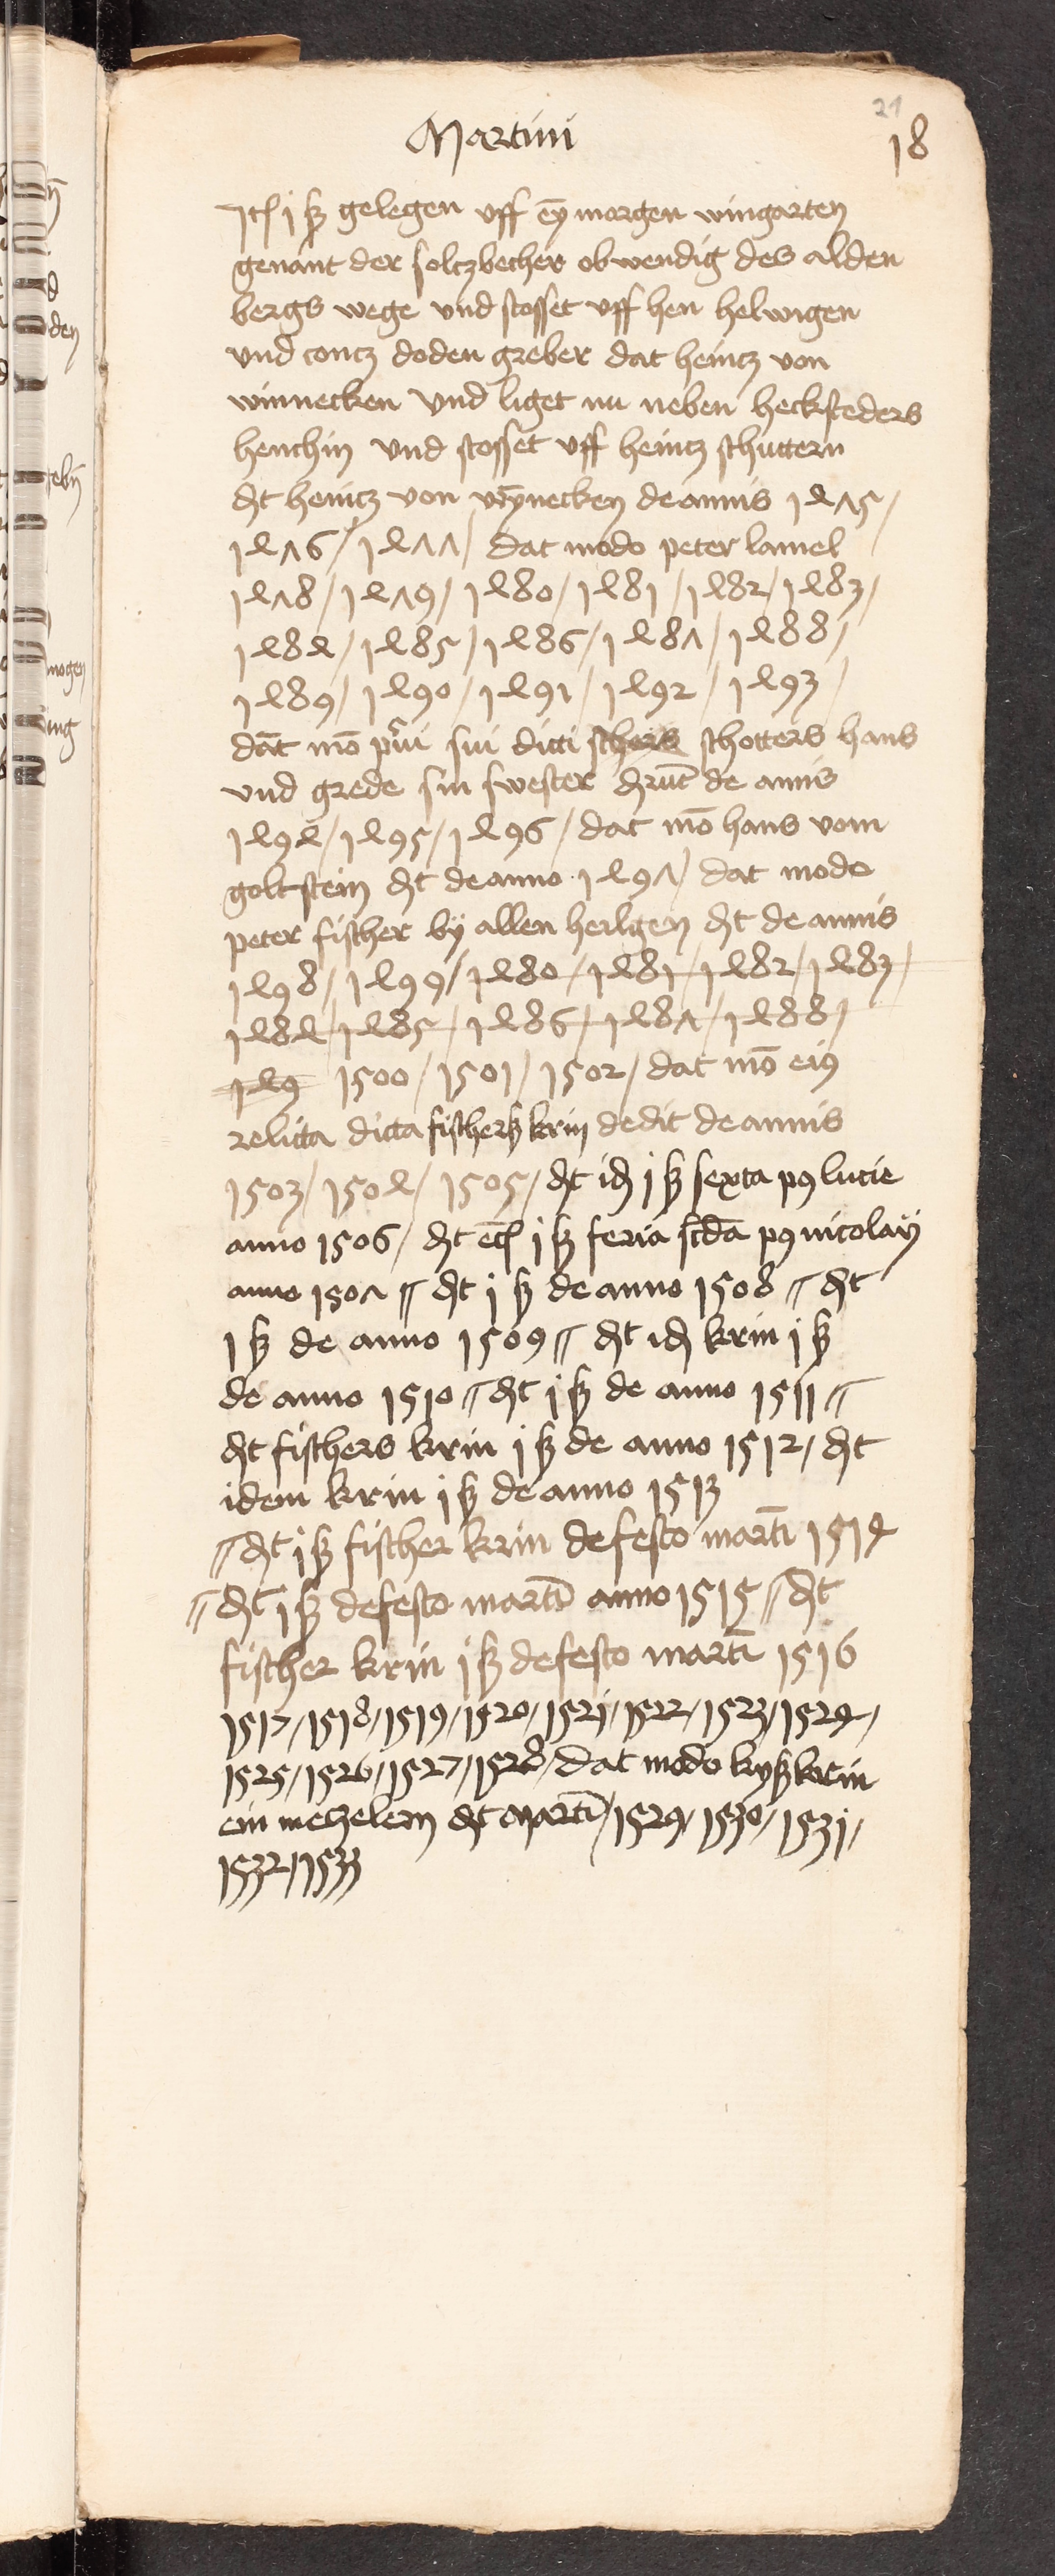 21
Martini 18
Itē j ß gelegen uff eȳ morgen wingarten
genant der soltzbecher obwendig des alden
bergs wege vnd stosset uff hen helwigen
vnd contz doden greber dat heintz von
winnecken vnd liget nu neben hecksteders
henchin vnd stosset uff heintz schuttern
dt heintz von wȳnecken de annis 1475/
1476/ 1477/ dat modo peter lamel
1478/ 1479/ 1480/ 1481/ 1482/ 1483/
1484/ 1485/ 1486/ 1487/ 1488/
1489/ 1490/ 1491/ 1492/ 1493/
dāt mō pͥui sui dicti schers schotters hans
vnd grede sin swester drūt de annis
1494/ 1495/ 1496/ dat mō hans vom
goltstein dt de anno 1497/ dat modo
peter fischer by allen heilgen dt de annis
1498/ 1499/ 1480/ 1481/ 1482/ 1483/
1484/ 1485/ 1486/ 1487/ 1488/
149 1500/ 1501/ 1502/ dat mō eiꝰ
relicta dicta fischerß krin dedit de annis
1503/ 1504/ 1505/ dt id j ß sexta pꝰ lucie
anno 1506/ dt j ß feria scďa pꝰ nicolaÿ
anno 1507 // dt j ß de anno 1508 // dt
j ß de anno 1509 // dt id krin j ß
de anno 1510 // dt j ß de anno 1511 //
dt fischers krin j ß de anno 1512/ dt
idem krin j ß de anno 1513
// dt j ß fischer krin de festo martī 1514
// dt j ß de festo martī anno 1515 // dt
fischer krin j ß de festo martī 1516
1517/ 1518/ 1519/ 1520/ 1521/ 1522/ 1523/ 1524/
1525/ 1526/ 1527/ 1528/ dat modo kyß krin
ein metzelern dt martī/ 1529/ 1530/ 1531/
1532/ 1533